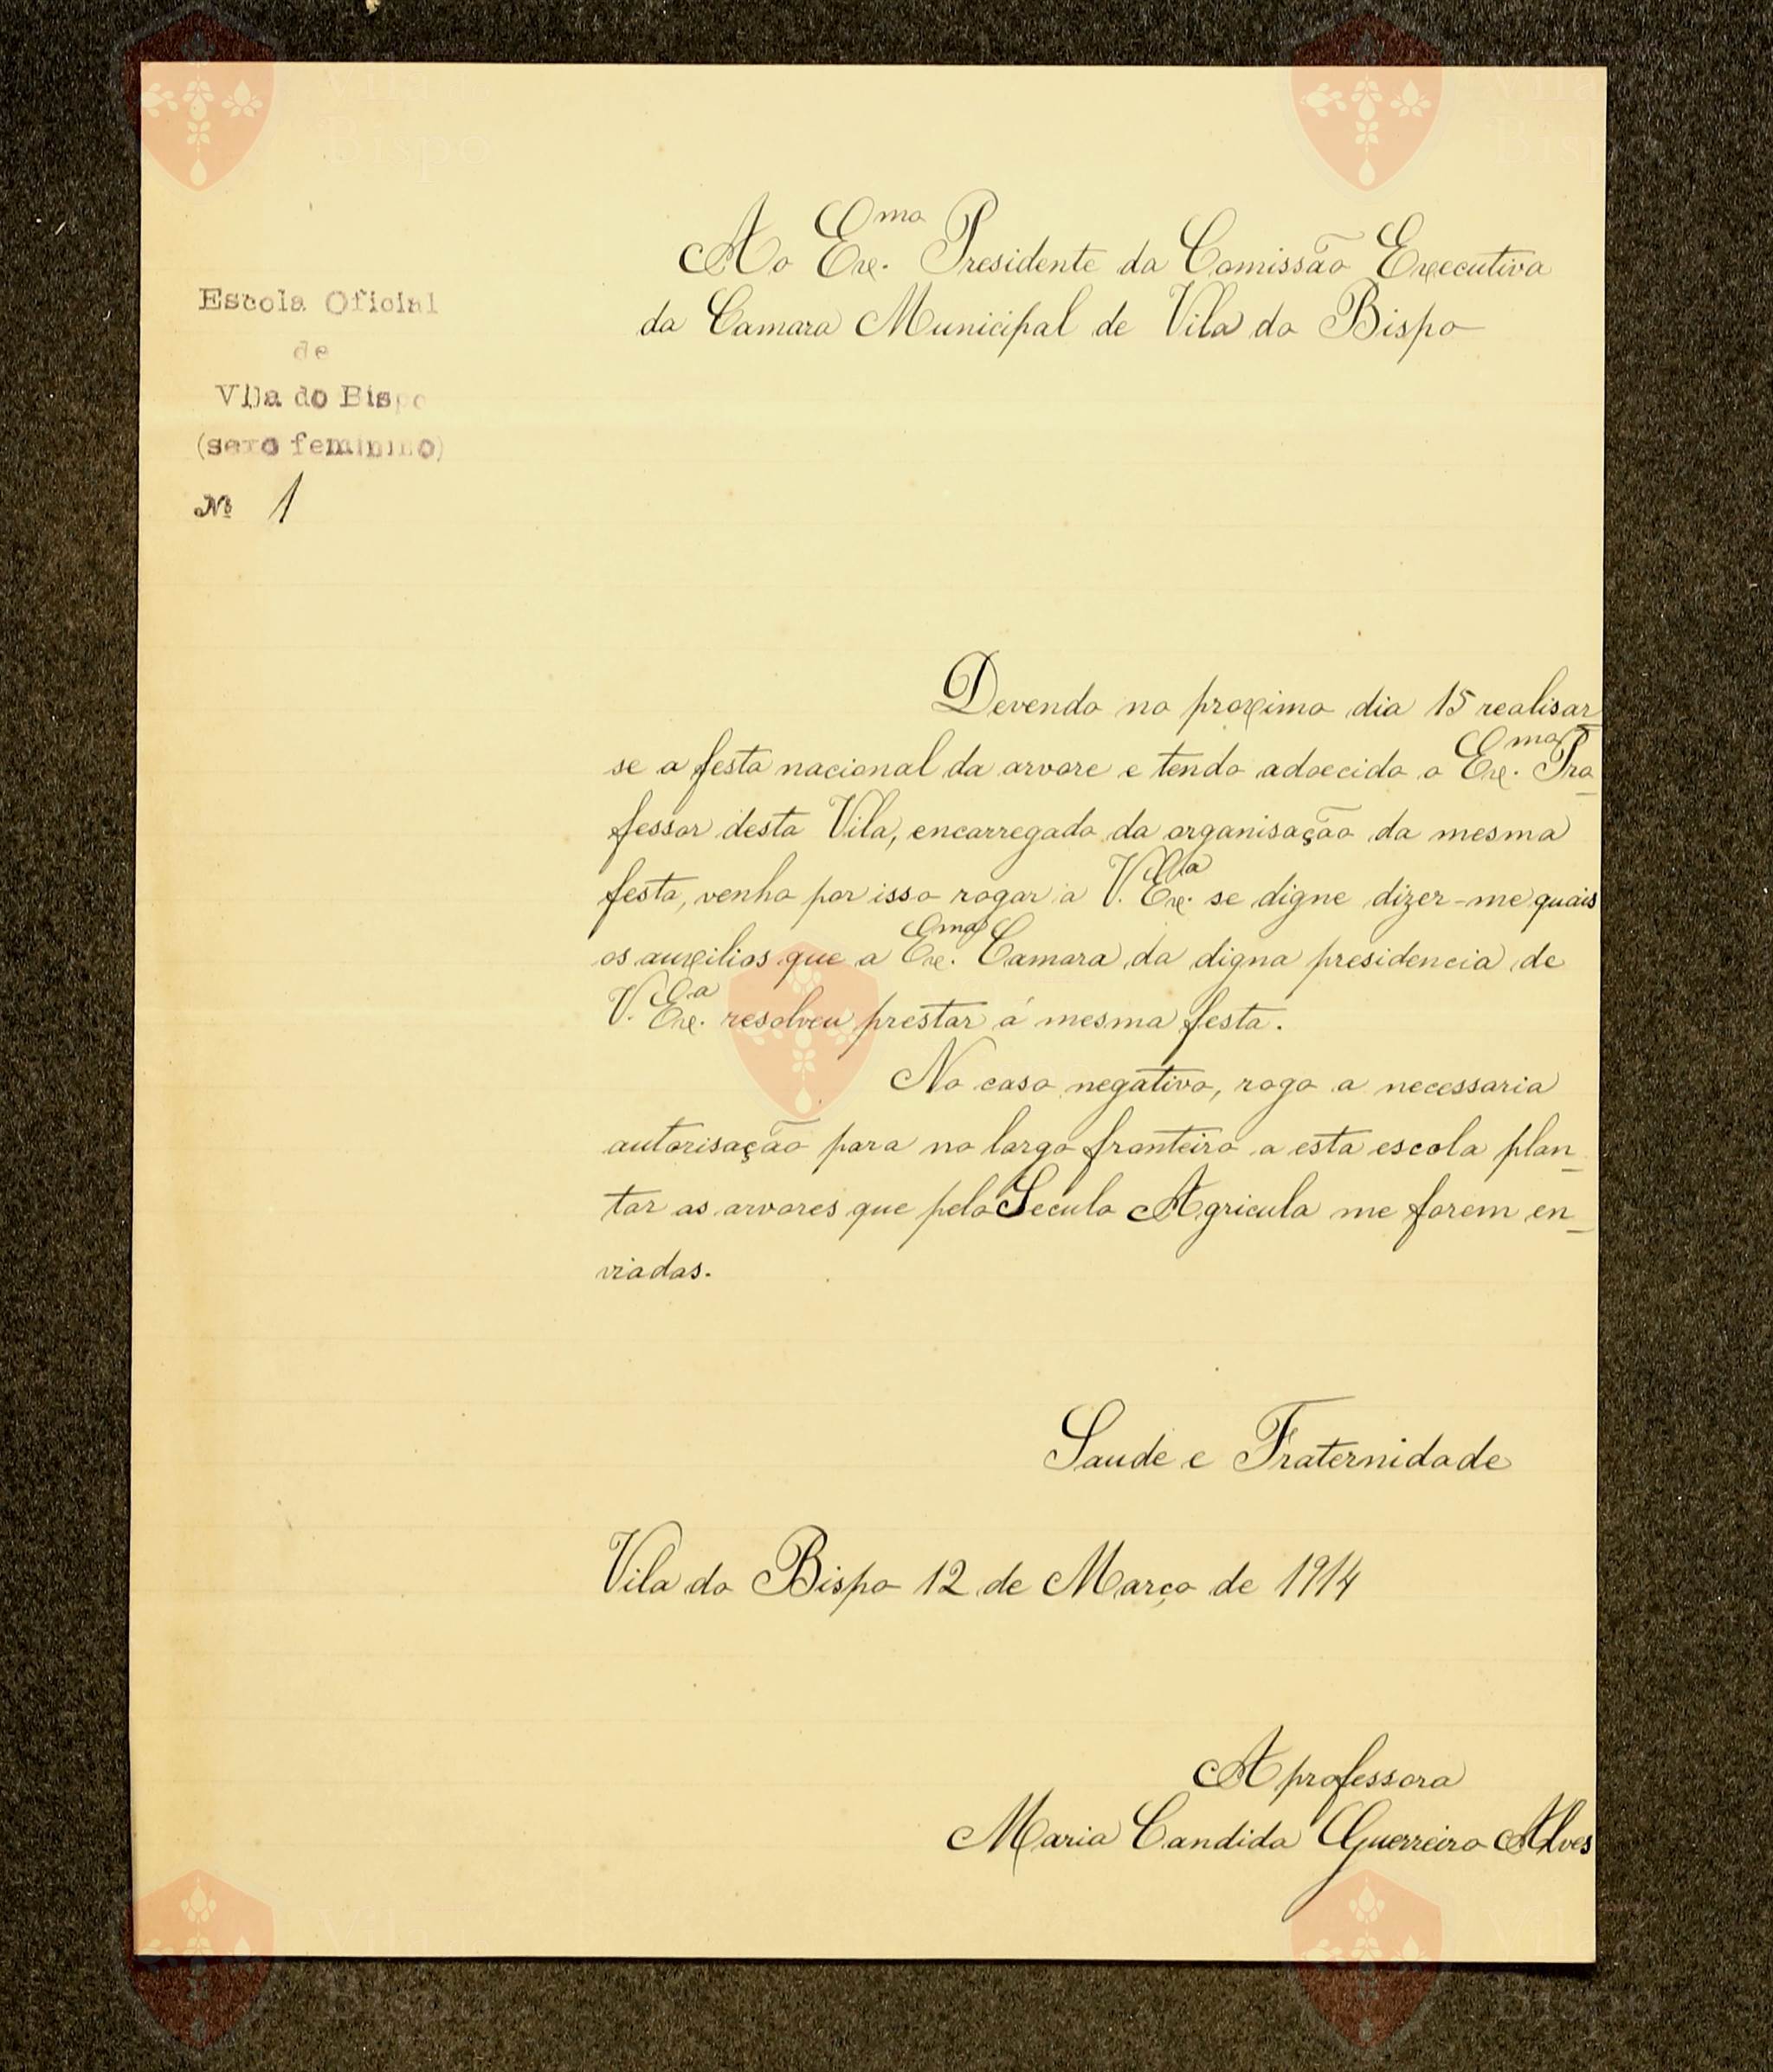 Escola Oficial
de
Vila do Bispo
(sexo feminino)
Nº 1
Ao Ex.mo Presidente da Comissão Executiva
da Camara Municipal de Vila do Bispo
Devendo no proximo dia 15 realisar-
se a festa nacional da arvore e tendo adoecido o Ex.mo Pro-
fessor desta Vila, encarregado da organisação da mesma
festa, venho por isso rogar a V. Ex.a se digne dizer-me quais
os auxilios que a Ex.ma Camara da digna presidencia de
V. Ex.a resolveu prestar á mesma festa.
No caso negativo, rogo a necessaria
autorisação para no largo fronteiro a esta escola plan-
tar as arvores que pelo Seculo Agricula me forem en-
viadas.
Saude e Fraternidade
Vila do Bispo 12 de Março de 1914
A professora
Maria Candida Guerreiro Alves
Vila
Bispo
Vila
Bisp
Vila
Bispo
Vila
Bispo